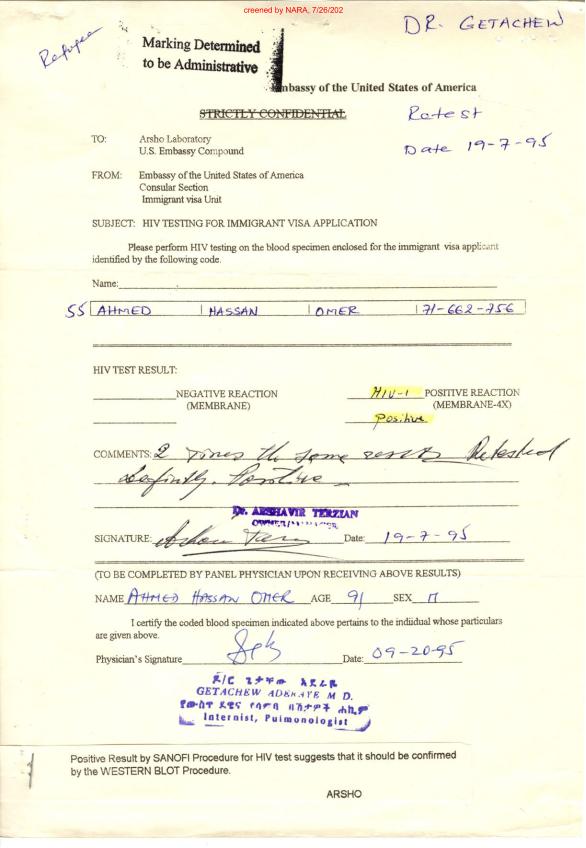 creened by NARA, 7/26/202
DR. GETACHEW
Refugee
Marking Determined
to be Administrative
mbassy of the United States of America
STRICTLY CONFIDENTIAL
Retest
Date 19-7-95
TO: Arsho Laboratory
U.S. Embassy Compound
FROM: Embassy of the United States of America
Consular Section
Immigrant visa Unit
SUBJECT: HIV TESTING FOR IMMIGRANT VISA APPLICATION
Please perform HIV testing on the blood specimen enclosed for the immigrant visa applicant
identified by the following code.
Name:
55 AHMED HASSAN OMER 71-662-756
HIV TEST RESULT:
NEGATIVE REACTION HIV-1 POSITIVE REACTION
(MEMBRANE) (MEMBRANE-4X)
Positive
COMMENTS: 2 times the same Retested
definitly. Positive
Dr. ARSHAVIR TERZIAN
OWNER/MANAGER
SIGNATURE: Date: 19-7-95
(TO BE COMPLETED BY PANEL PHYSICIAN UPON RECEIVING ABOVE RESULTS)
NAME AHMED HASSAN OMER AGE 91 SEX M
I certify the coded blood specimen indicated above pertains to the indiidual whose particulars
are given above.
Physician's Signature Date: 09-20-95
ዶ/ር ጌታቸው አደራዬ
GETACHEW ADERAYE M D.
የውስጥ ደዌና የሳምባ በሽታዎች ሐኪም
Internist, Pulmonologist
Positive Result by SANOFI Procedure for HIV test suggests that it should be confirmed
by the WESTERN BLOT Procedure.
ARSHO